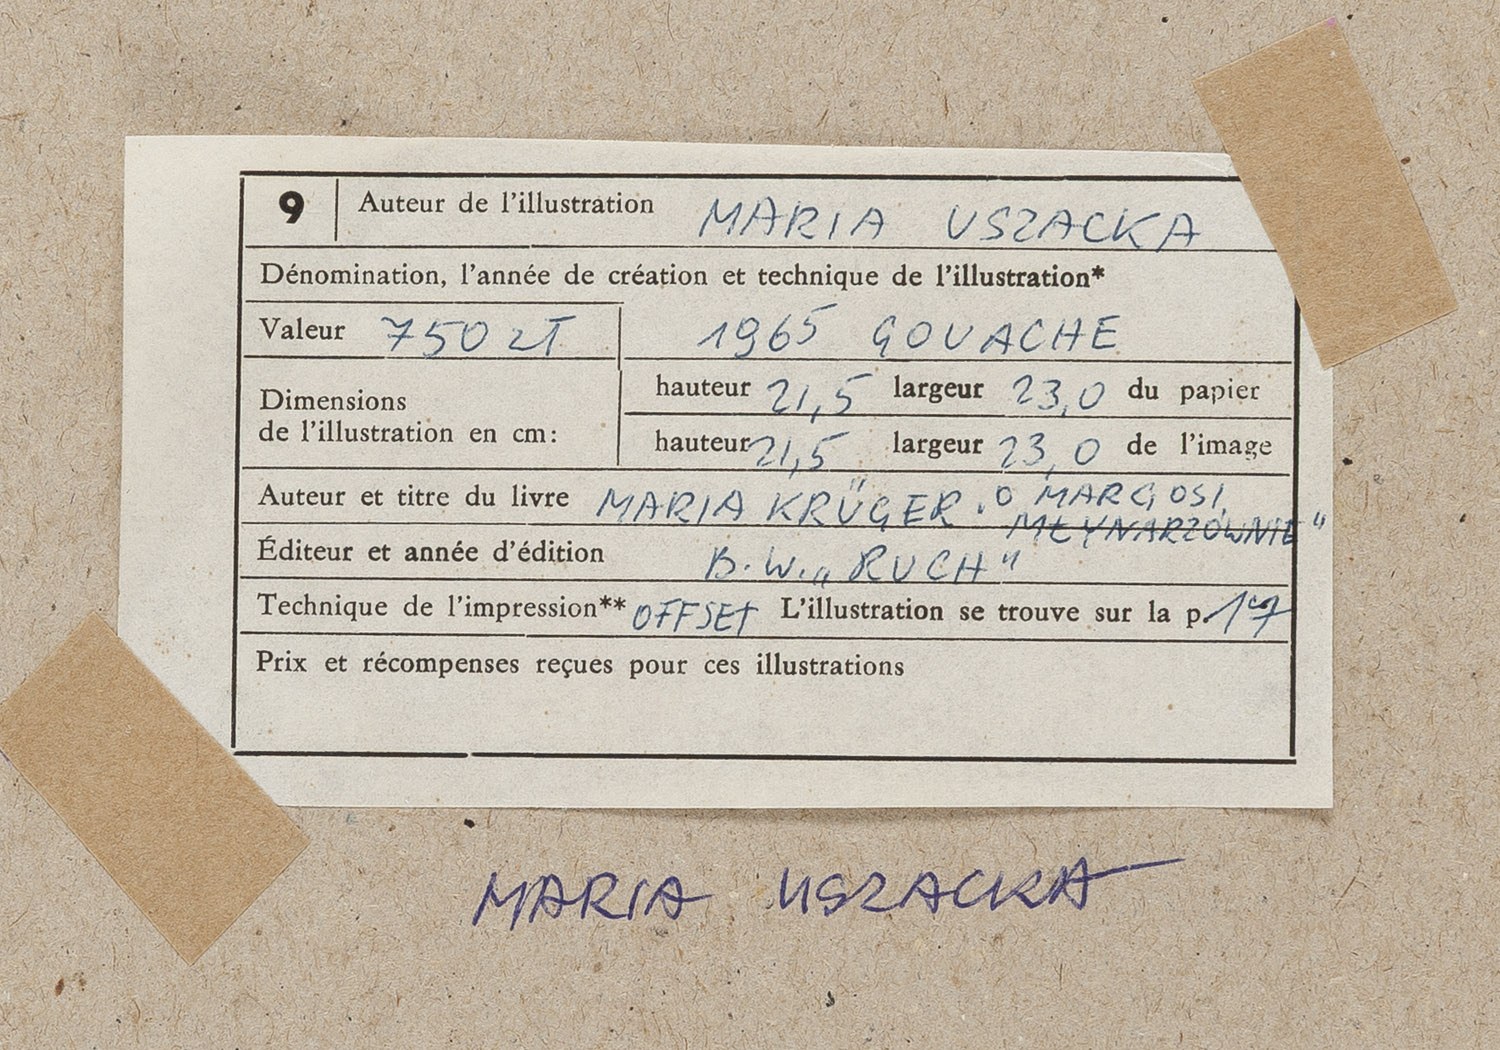 9 Auteur de l'illustration MARIA USZACKA
Dénomination, l'année de création et technique de l'illustration*
Valeur 750 zł 1965 GOUACHE
Dimensions
de l'illustration en cm:
hauteur 21,5 largeur 23,0 du papier
hauteur 21,5 largeur 23,0 de l'image
Auteur et titre du livre MARIA KRÜGER „O MARGOSI,
MŁYNARZÓWNIE"
Éditeur et année d'édition B.W. „RUCH"
Technique de l'impression** OFFSET L'illustration se trouve sur la p.
Prix et récompenses reçues pour ces illustrations
MARIA USZACKA